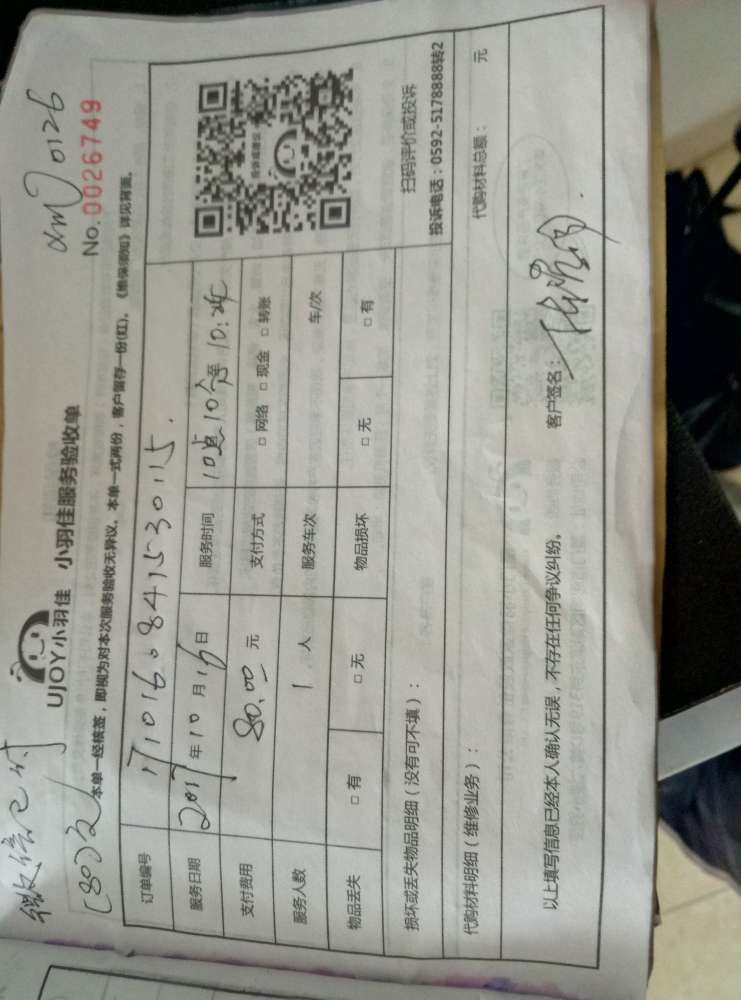 微信已付
(80)元
0126
No.0026749
UJOY小羽佳 小羽佳服务验收单
本单一经核签，即视为对本次服务验收无异议。本单一式两份，客户留存一份(红)。《维保须知》详见背面。
订单编号 1710160841530115.
服务日期 2017年10月16日 服务时间 10点10分至10:
支付费用 80.00 元 支付方式 □ 网络 □ 现金 □ 转账
服务人数 1 人 服务车次 车/次
物品丢失 □ 有 □ 无 物品损坏 □ 无 □ 有
扫码评价或投诉
投诉电话：0592-5178888转2
损坏或丢失物品明细（没有可不填）：
代购材料明细（维修业务）： 代购材料总额： 元
以上填写信息已经本人确认无误，不存在任何争议纠纷。 客户签名：